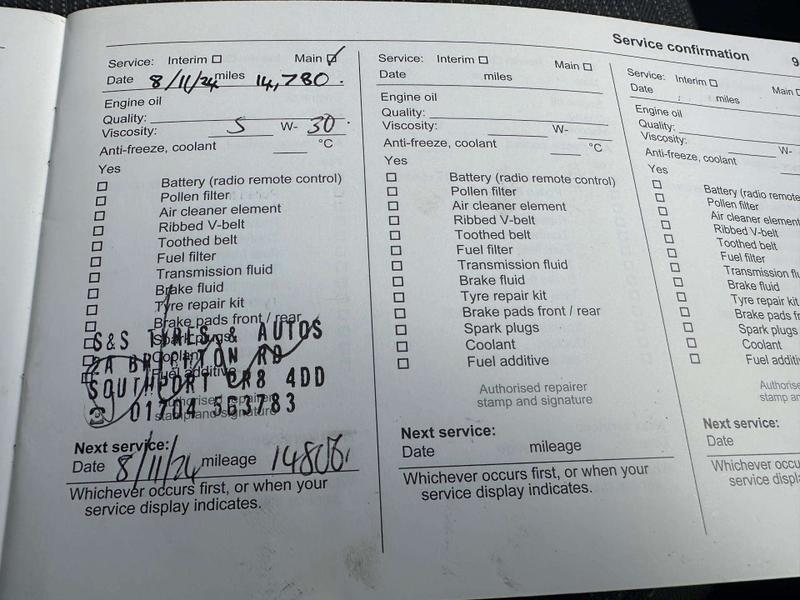 Service confirmation 9
Service: Interim Main
Date 8/11/24 miles 14,780.
Engine oil
Quality:
Viscosity: 5 W- 30
Anti-freeze, coolant °C
Yes
Battery (radio remote control)
Pollen filter
Air cleaner element
Ribbed V-belt
Toothed belt
Fuel filter
Transmission fluid
Brake fluid
Tyre repair kit
Brake pads front / rear
Spark plugs
Coolant
Fuel additive
Authorised repairer
stamp and signature
S&S TYRES & AUTOS
2A RD
SOUTHPORT 4DD
01704 563783
Next service:
Date 8/11/24 mileage
Whichever occurs first, or when your
service display indicates.
Service: Interim Main
Date miles
Engine oil
Quality:
Viscosity: W-
Anti-freeze, coolant °C
Yes
Battery (radio remote control)
Pollen filter
Air cleaner element
Ribbed V-belt
Toothed belt
Fuel filter
Transmission fluid
Brake fluid
Tyre repair kit
Brake pads front / rear
Spark plugs
Coolant
Fuel additive
Authorised repairer
stamp and signature
Next service:
Date mileage
Whichever occurs first, or when your
service display indicates.
Service: Interim Main
Date miles
Engine oil
Quality:
Viscosity: W-
Anti-freeze, coolant
Yes
Battery (radio remote
Pollen filter
Air cleaner element
Ribbed V-belt
Toothed belt
Fuel filter
Transmission flu
Brake fluid
Tyre repair kit
Brake pads f
Spark plugs
Coolant
Fuel additiv
Authoris
stamp an
Next service:
Date
Whichever occu
service displ